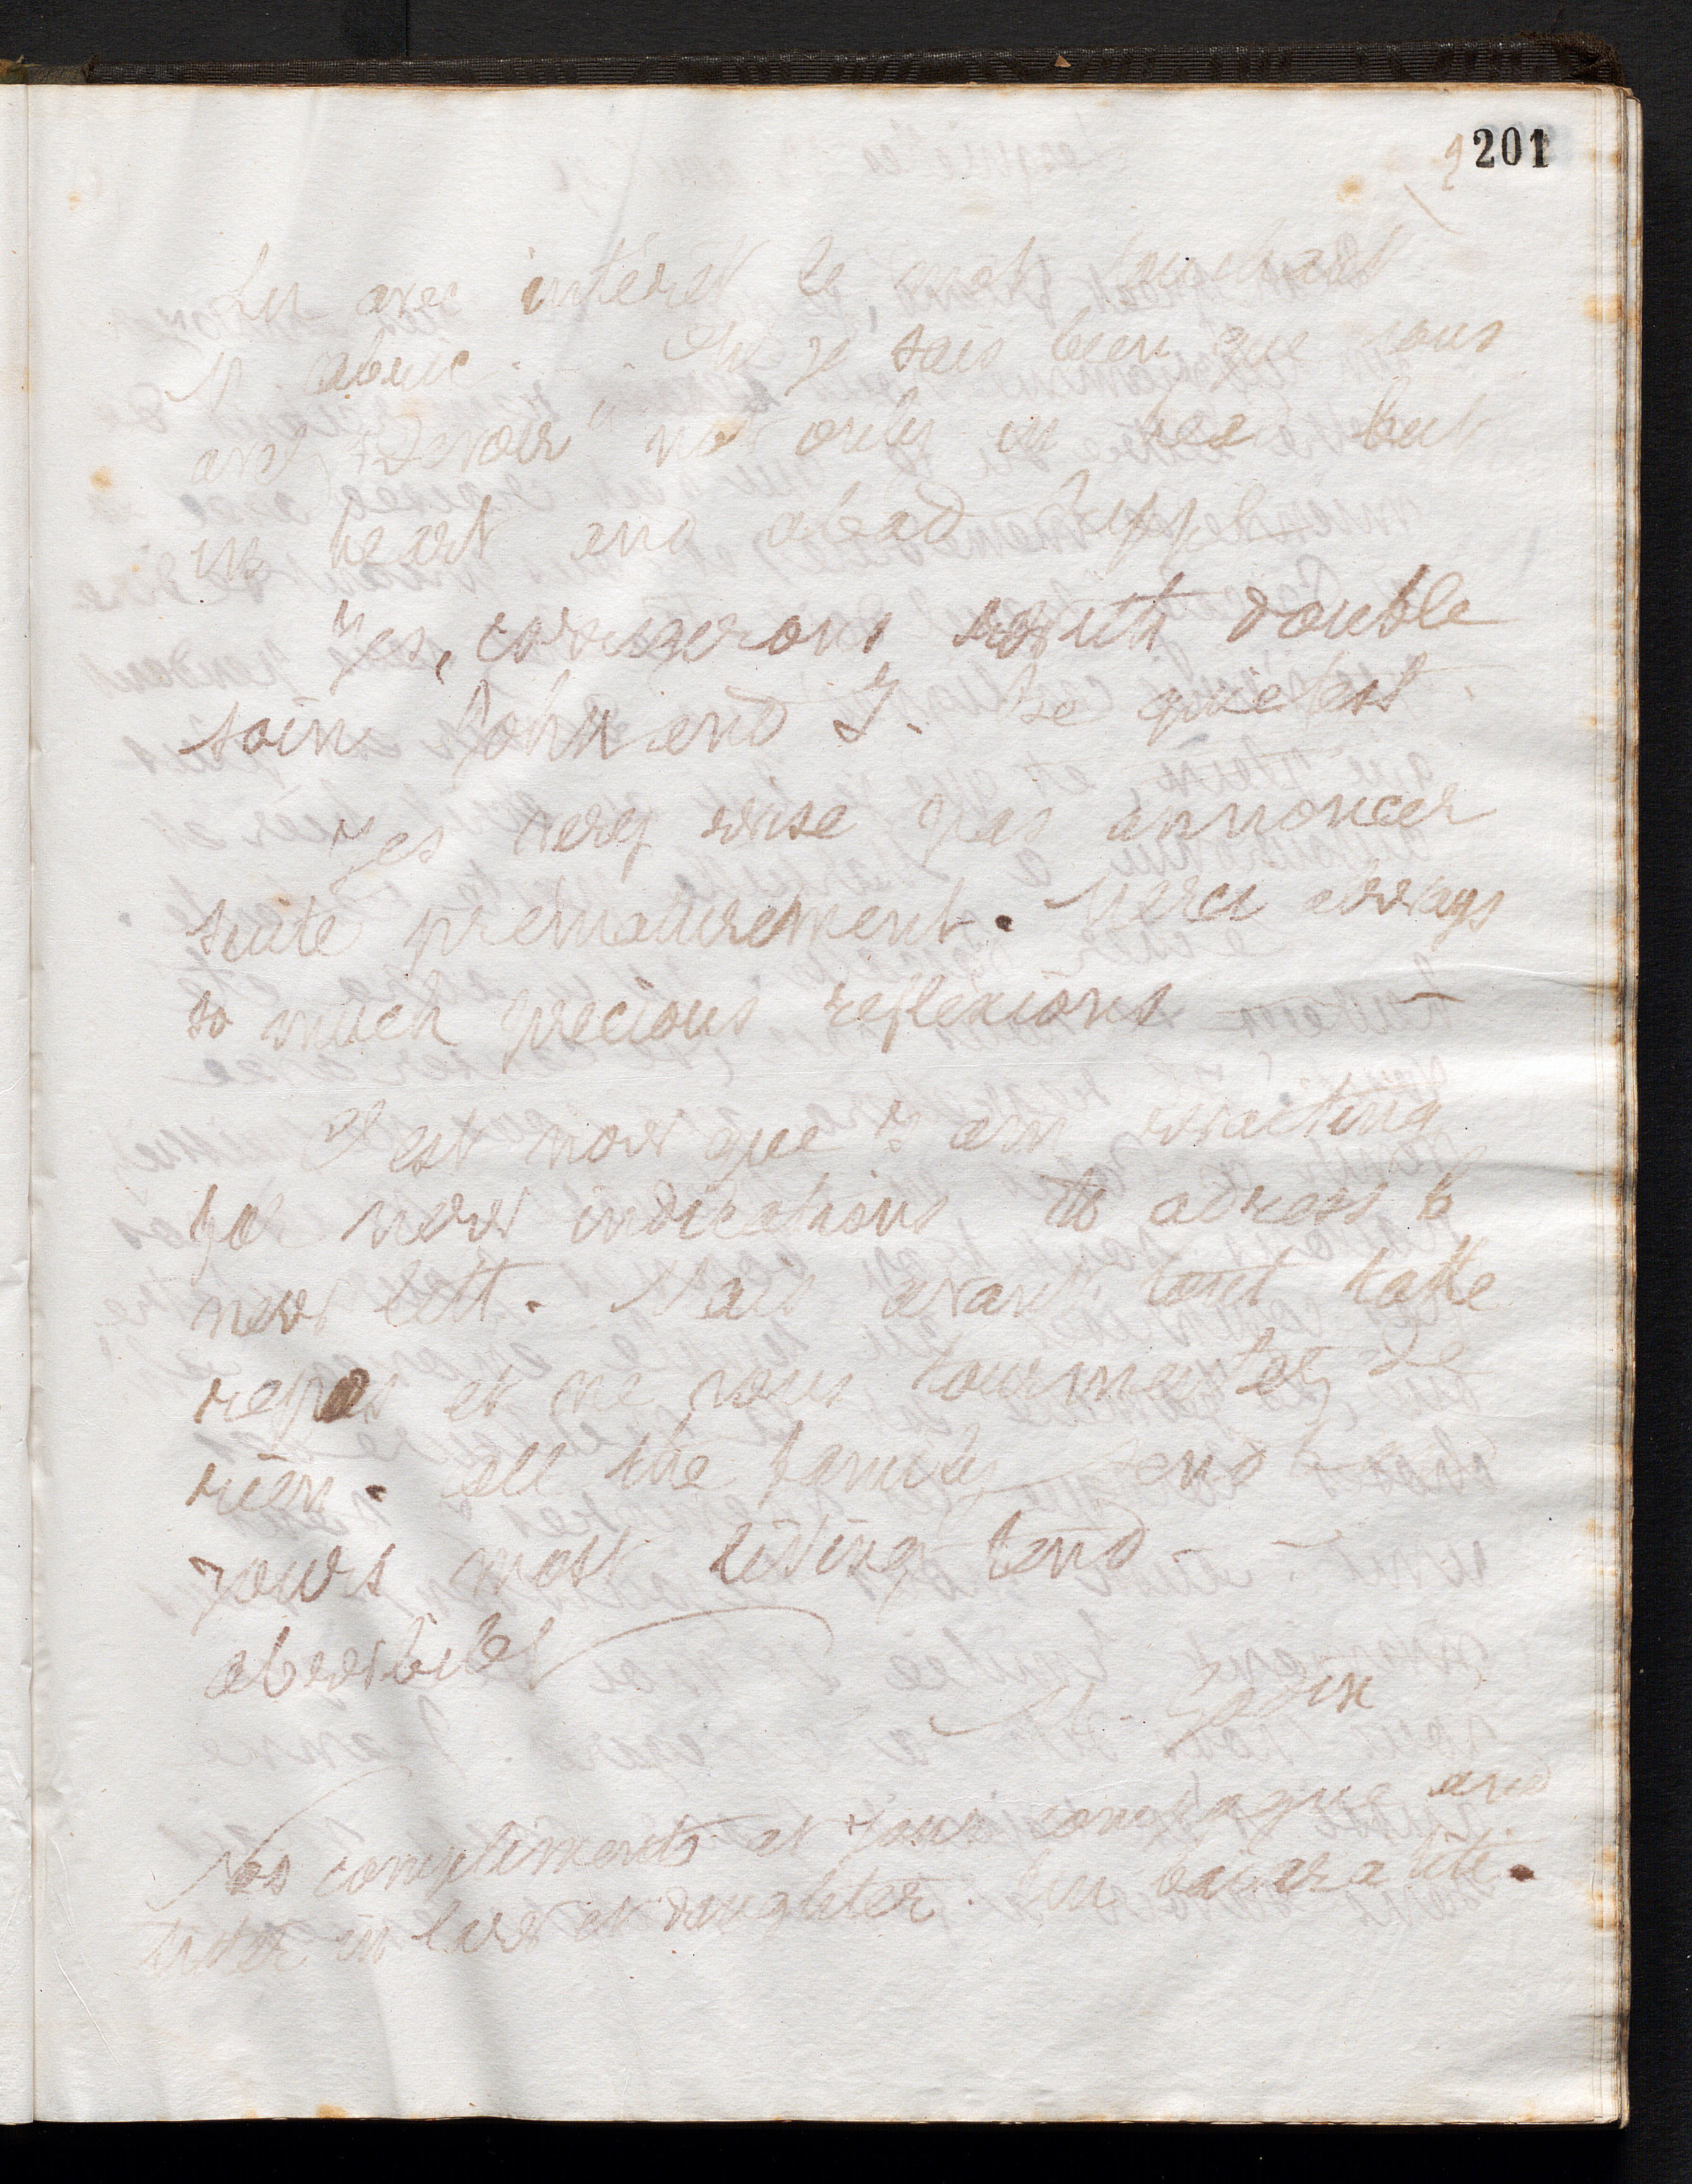 201
Lu avec intérêt le mot touchant
M. . Oh je sais bien que vous
"Devoir" not only in but
in heart and suppl
Yes, corrigerons with double
soin John and I. Be quietest.
Yes very wise pas annoncer
suite prématurément. Merci always
so much precious reflexions —
C'est now que I am waiting
for new indications to adress to
new lett. Mais avant tout take
repos et ne vous tourmentez de
rien. all the family send
yours most living and

M. Godin
Nos compliments at your compagne and
sister in law et daughter.